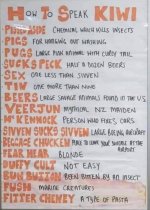 HOW TO SPEAK KIWI
PISTICIDE CHEMICAL WHICH KILLS INSECTS
PIGS FOR HANGING OUT WASHING
PUGS LARGE PINK ANIMAL WITH CURLY TAIL
SUCKS PECK HALF A DOZEN BEERS
SEX ONE LESS THAN SIVVEN
TIN ONE MORE THAN NINE
BEERS LARGE SAVAGE ANIMALS FOUND IN THE U.S.
VERJUN MYTHICAL NZ MAIDEN
MCKENNOCK PERSON WHO FIXES CARS
SIVVEN SUCKS SIVVEN LARGE BOEING AIRCRAFT
BEGGAGE CHUCKEN PLACE TO LEAVE YOUR SUITCASE AT THE AIRPORT
FEAR HEAR BLONDE
DUFFY CULT NOT EASY
BUN BUTTIN BEEN BITTEN BY AN INSECT
FUSH MARINE CREATURES
FITTER CHENEY A TYPE OF PASTA